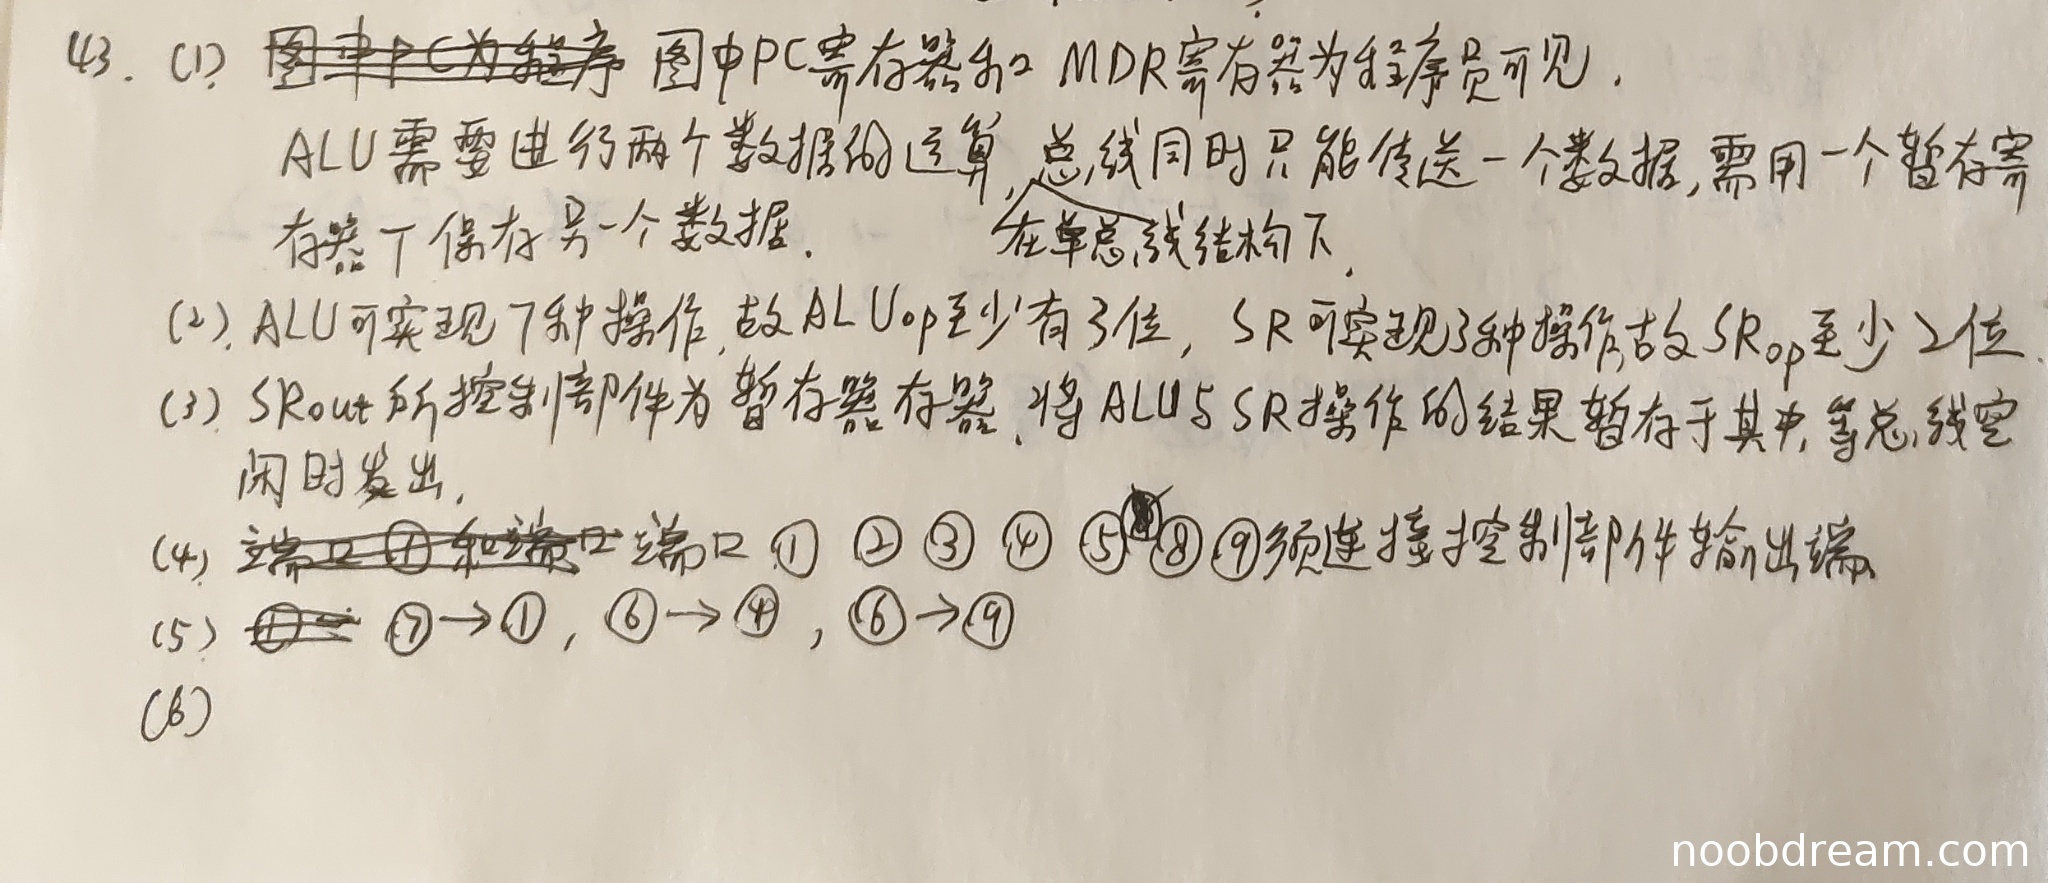 43. (1) 图中PC为程序 图中PC寄存器和MDR寄存器为程序员可见.
ALU需要进行两个数据的运算,总线同时只能传送一个数据,需用一个暂存寄
存器T保存另一个数据. 在单总线结构下,
(2). ALU可实现7种操作,故ALUop至少有3位, SR可实现3种操作,故SRop至少2位.
(3) SRout所控制部件为暂存器存器,将ALU与SR操作的结果暂存于其中,等总线空
闲时发出.
(4) 端口⑦和端口 端口 ① ② ③ ④ ⑤ ⑧ ⑨须连接控制部件输出端.
(5) ⑦→①, ⑥→④, ⑥→⑨
(6)
noobdream.com